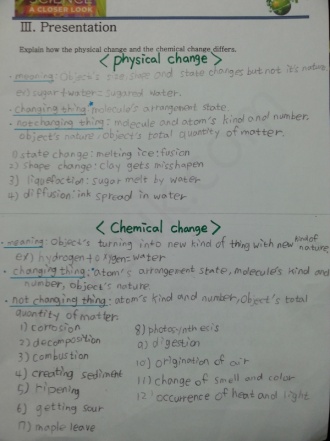 SCIENCE
A CLOSER LOOK
III. Presentation
Explain how the physical change and the chemical change differs.
< physical change >
· meaning: Object's size, shape and state changes but not it's nature.
ex) sugar + water = sugared water.
· changing thing: molecule's arrangement state.
· not changing thing: molecule and atom's kind and number.
object's nature. object's total quantity of matter.
1) state change: melting ice: fusion
2) shape change: clay gets misshapen
3) liquefaction: sugar melt by water
4) diffusion: ink spread in water
< Chemical change >
· meaning: Object's turning into new kind of thing with new kind of nature.
ex) hydrogen + oxygen: water
· changing thing: atom's arrangement state, molecule's kind and
number, object's nature
· not changing thing: atom's kind and number, Object's total
quantity of matter.
1) corrosion 8) photosynthesis
2) decomposition 9) digestion
3) combustion 10) origination of air
4) creating sediment 11) change of smell and color
5) ripening 12) occurrence of heat and light
6) getting sour
7) maple leave